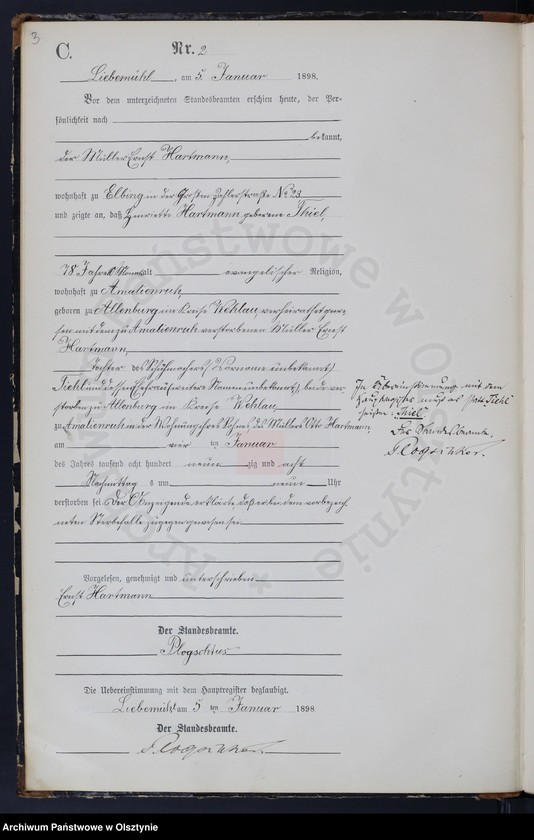 3
C.
Nr. 2
Liebemühl, am 5. Januar 1898.
Vor dem unterzeichneten Standesbeamten erschien heute, der Per-
sönlichkeit nach
bekannt,
der Müller Ernst Hartmann,
wohnhaft zu Elbing in der Großen Zahlerstraße No 23
und zeigte an, daß Henriette Hartmann geborene Thiel,
78 Jahre alt evangelischer Religion,
wohnhaft zu Amalienruh,
geboren zu Allenburg im Kreise Wehlau, verheirathet gewe-
sen mit dem zu Amalienruh verstorbenen Müller Ernst
Hartmann,
Tochter des Schuhmachers (Vorname unbekannt)
Tiehl und dessen Ehefrau (weiterer Name unbekannt), beide ver-
storben zu Allenburg im Kreise Wehlau,
zu Amalienruh in der Wohnung ihres Sohnes des Müllers Otto Hartmann,
am vier ten Januar
des Jahres tausend acht hundert neunzig und acht
Nachmittags um neun Uhr
verstorben sei. Der Anzeigende erklärte, daß er bei dem vorbezeich-
neten Sterbefalle zugegen gewesen sei.
Vorgelesen, genehmigt und unterschrieben
Ernst Hartmann
Der Standesbeamte.
Plogschties
Die Uebereinstimmung mit dem Hauptregister beglaubigt.
Liebemühl am 5 ten Januar 1898
Der Standesbeamte.
In Übereinstimmung mit dem
Hauptregister muß es statt "Tiehl"
heißen: "Thiel"
Der Standesbeamte.
Archiwum Państwowe w Olsztynie
Archiwum Państwowe w Olsztynie